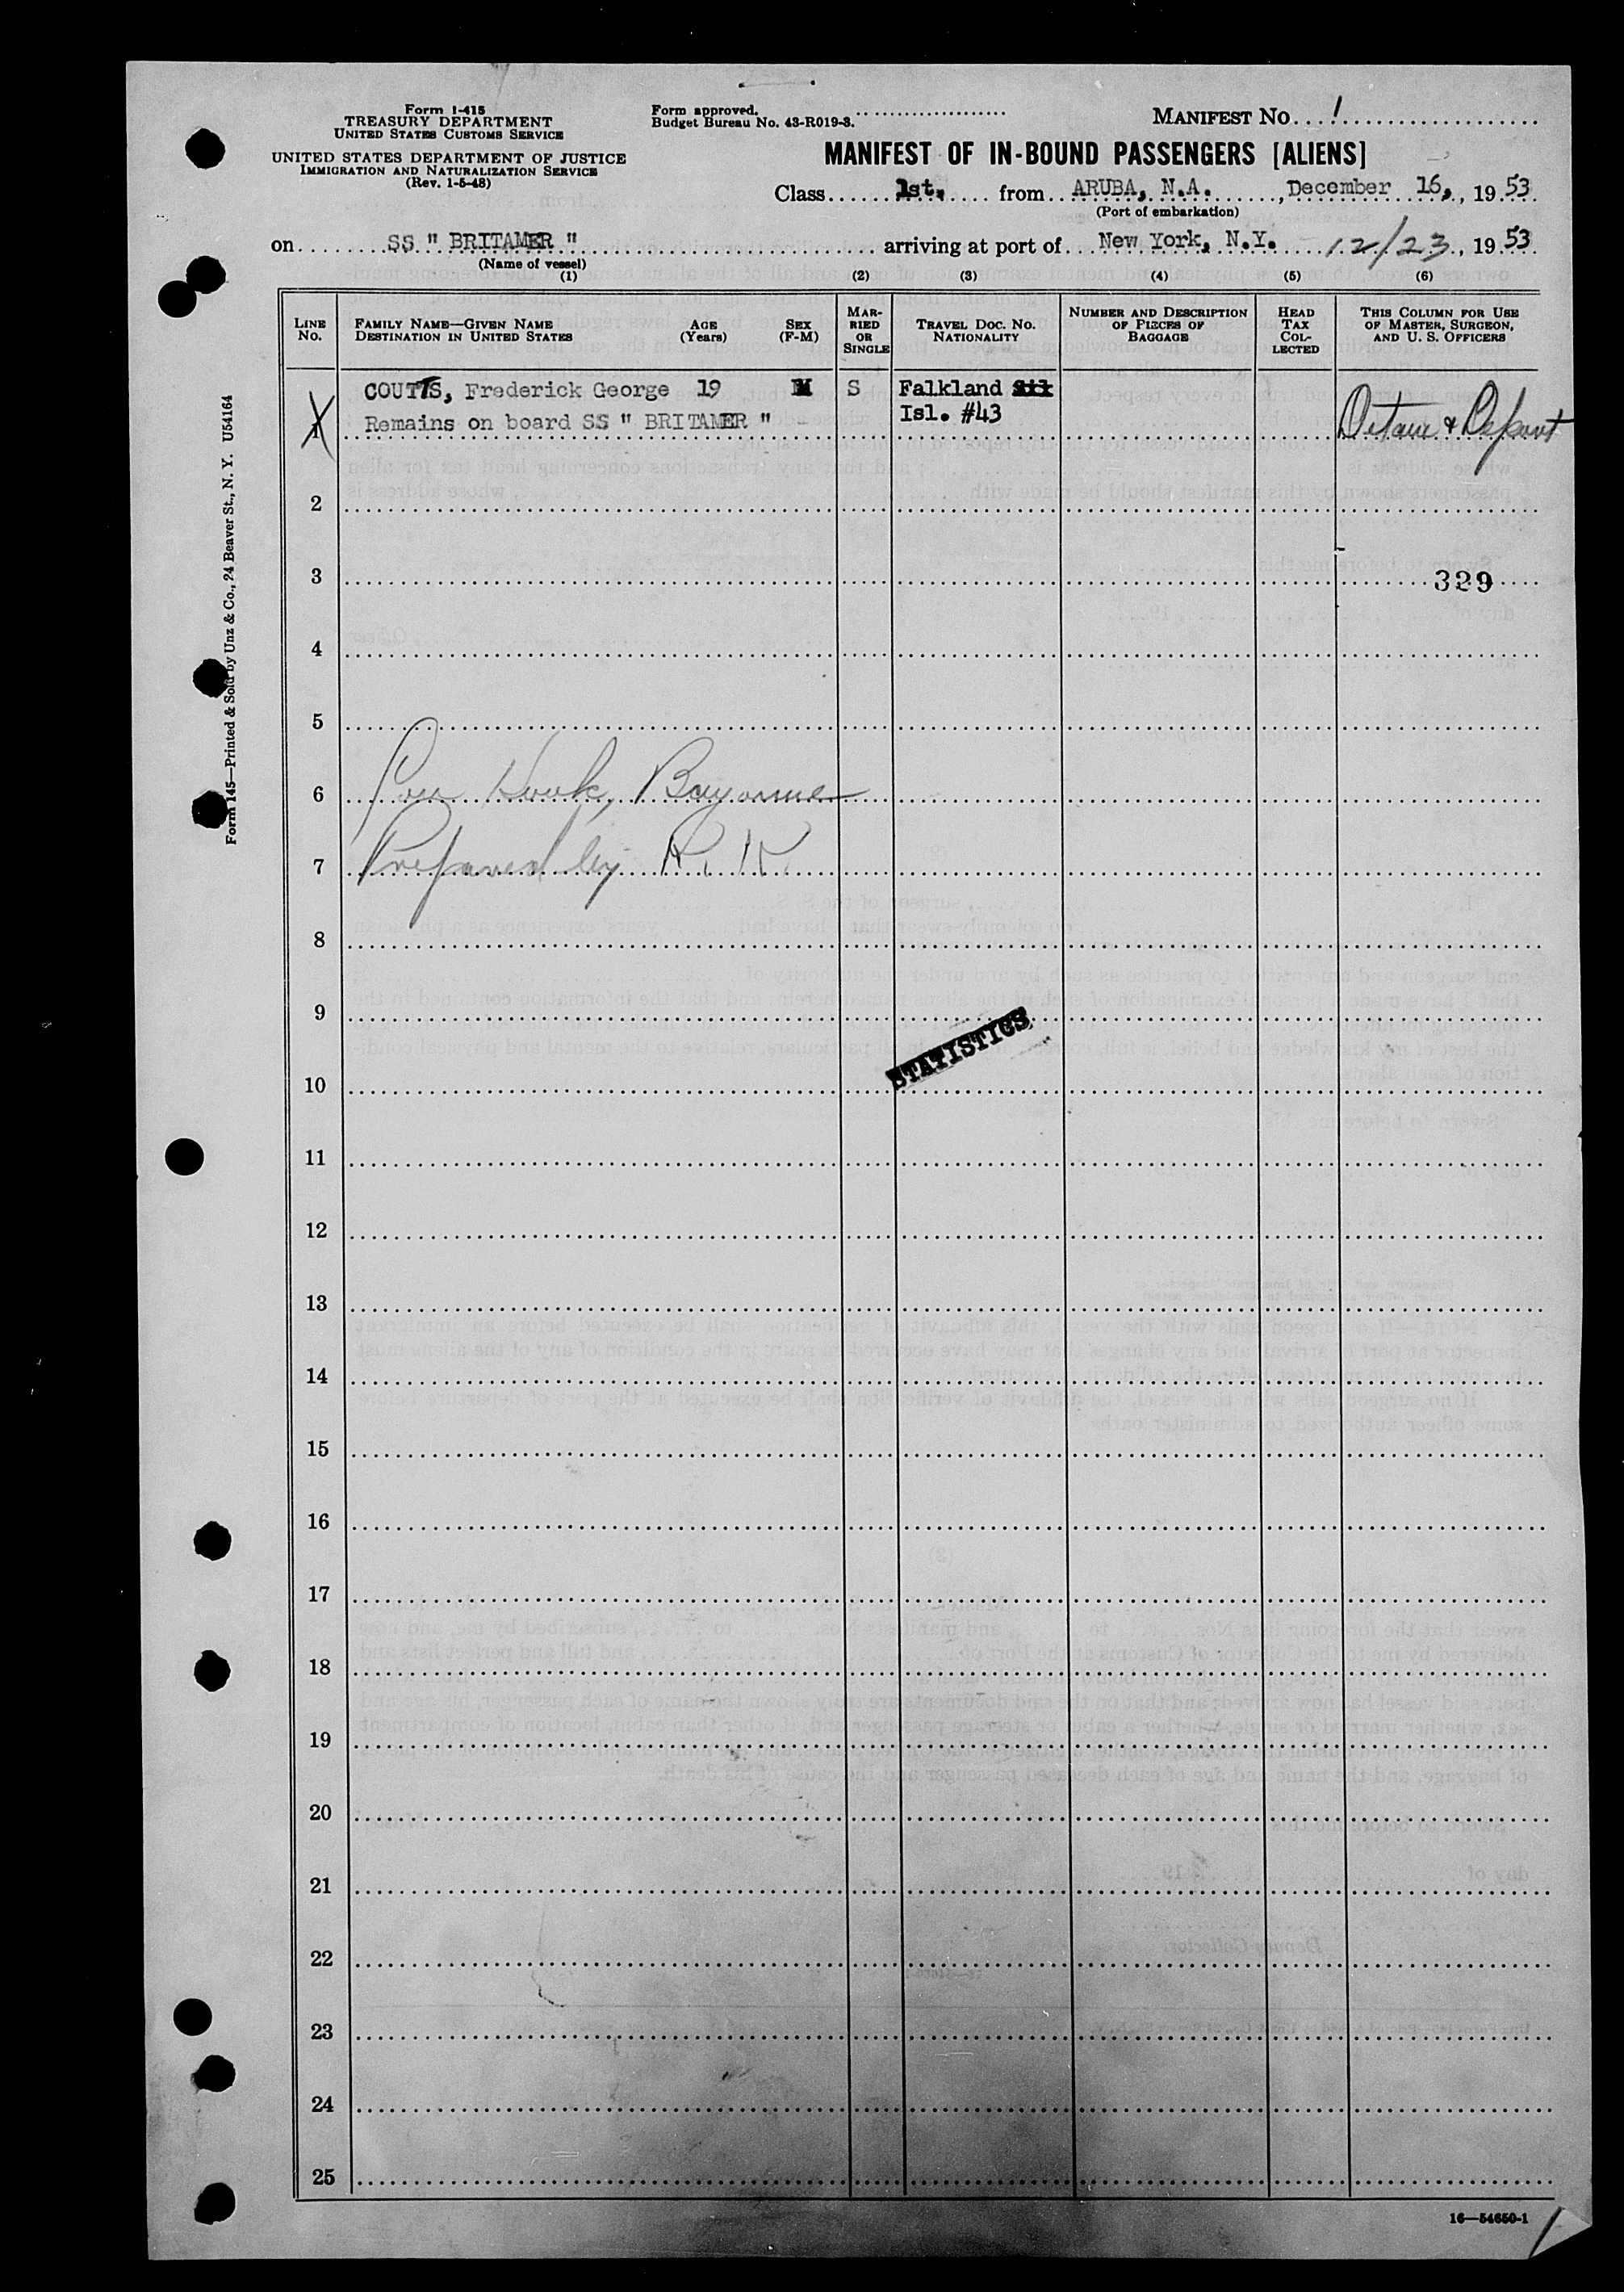 Form I-415
TREASURY DEPARTMENT
UNITED STATES CUSTOMS SERVICE
UNITED STATES DEPARTMENT OF JUSTICE
IMMIGRATION AND NATURALIZATION SERVICE
(Rev. 1-5-48)
Form approved.
Budget Bureau No. 43-R019-3.
MANIFEST NO. 1
MANIFEST OF IN-BOUND PASSENGERS [ALIENS]
Class 1st. from ARUBA, N.A., December 16, 1953
(Port of embarkation)
on SS " BRITAMER " arriving at port of New York, N.Y. 12/23, 1953
(Name of vessel)
(1) (2) (3) (4) (5) (6)
LINE NO.
FAMILY NAME—GIVEN NAME
DESTINATION IN UNITED STATES
AGE (Years)
SEX (F-M)
MARRIED OR SINGLE
TRAVEL DOC. NO.
NATIONALITY
NUMBER AND DESCRIPTION OF PIECES OF BAGGAGE
HEAD TAX COLLECTED
THIS COLUMN FOR USE OF MASTER, SURGEON, AND U. S. OFFICERS
1 COUTTS, Frederick George 19 M S Falkland
Remains on board SS " BRITAMER " Isl. #43
Detain & Deport
2
3 329
4
5
6 Hook, Bayonne
7 Prepared by R. K.
8
9
STATISTICS
10
11
12
13
14
15
16
17
18
19
20
21
22
23
24
25
16—54650-1
Form 145—Printed & Sold by Unz & Co., 24 Beaver St., N. Y. U54164